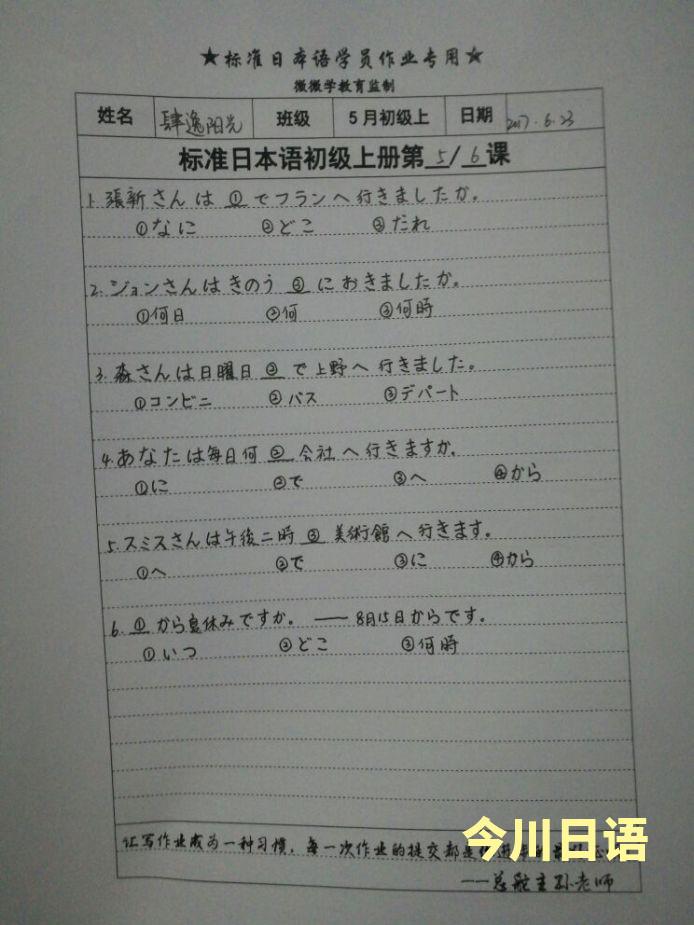 ★标准日本语学员作业专用★
微微学教育监制
姓名 肆逸阳光 班级 5月初级上 日期 2017.6.23
标准日本语初级上册第5/6课
1. 張新さんは ① でフランへ行きましたか。
①なに ②どこ ③だれ
2. ジョンさんはきのう ③ におきましたか。
①何日 ②何 ③何時
3. 森さんは日曜日 ② で上野へ行きました。
①コンビニ ②バス ③デパート
4. あなたは毎日何 ② 会社へ行きますか。
①に ②で ③へ ④から
5. スミスさんは午後二時 ③ 美術館へ行きます。
①へ ②で ③に ④から
6. ① から夏休みですか。 —— 8月15日からです。
①いつ ②どこ ③何時
让写作业成为一种习惯，每一次作业的提交都是
今川日语
——总舵主孙老师